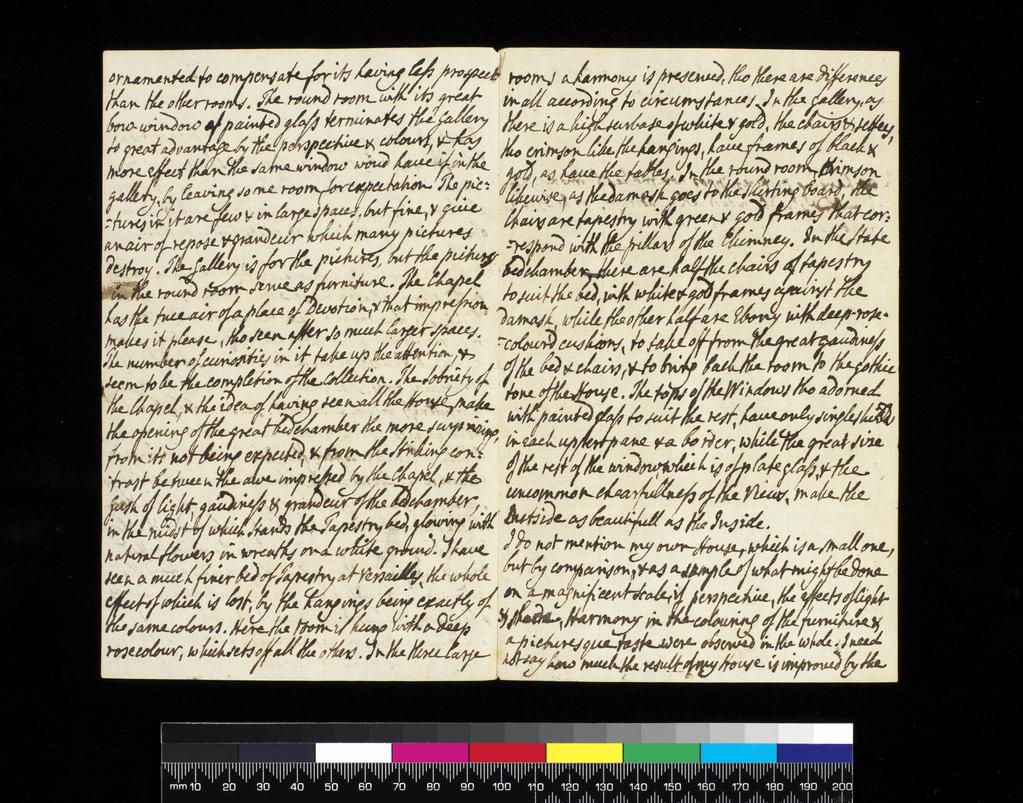 ornamented to compensate for its having less prospect
than the other rooms. The round room with its great
bow-window of painted glass terminates the Gallery
to great advantage by the perspective & colours, & has
more effect than the same window woud have if in the
gallery, by leaving some room for expectation. The pic-
-tures in it are few & in large spaces, but fine, & give
an air of repose & grandeur which many pictures
destroy. The Gallery is for the pictures, but the pictures
in the round room serve as furniture. The Chapel
has the true air of a place of Devotion, & that impression
makes it please, tho seen after so much larger spaces.
The number of curiosities in it take up the attention, &
seem to be the completion of the Collection. The sobriety of
the Chapel, & the idea of having seen all the House, make
the opening of the great bedchamber the more surprising,
from its not being expected, & from the striking con-
-trast between the awe impressed by the Chapel, & the
gush of light, gaudiness & grandeur of the bedchamber,
in the midst of which stands the Tapestry bed, glowing with
natural flowers in wreaths on a white ground. I have
seen a much finer bed of Tapestry at Versailles, the whole
effect of which is lost, by the hangings being exactly of
the same colours. Here the room is hung with a deep
rosecolour, which sets off all the others. In the three large
rooms a harmony is preserved, tho there are differences
in all according to circumstances. In the Gallery, as
there is a high surbase of white & gold, the chairs & settees,
tho crimson like the hangings, have frames of black &
gold, as have the tables. In the round room, Crimson
likewise, as the damask goes to the skirting board, the
Chairs are tapestry with green & gold frames that cor-
-respond with the pillars of the Chimney. In the State
bedchamber, there are half the chairs of tapestry
to suit the bed, with white & gold frames against the
damask, while the other half are Ebony with deep rose-
-colourd cushions, to take off from the great gaudiness
of the bed & chairs, & to bring back the room to the gothic
tone of the House. The tops of the Windows tho adorned
with painted glass to suit the rest, have only single shields
in each uppert pane & a border, while the great size
of the rest of the window, which is of plate glass, & the
uncommon chearfullness of the Views, make the
Outside as beautifull as the Inside.
I do not mention my own House, which is a small one,
but by comparison, & as a sample of what might be done
on a magnificent scale, if perspective, the effects of light
& shade, Harmony in the colouring of the furniture &
a picturesque taste were observed in the whole. I need
not say how much the result of my House is improved by the
mm 10 20 30 40 50 60 70 80 90 100 110 120 130 140 150 160 170 180 190 200